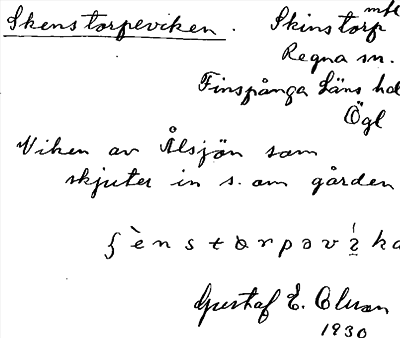 Skenstorpeviken. Skinstorp mtl
Regna sn.
Finspånga Läns hd
Ögl
Viken av Ålsjön som
skjuter in s. om gården
Gustaf E. Olsson
1930